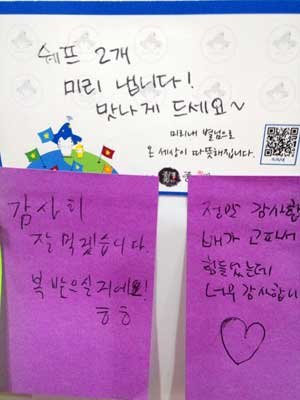 쉐프 2개
미리 냅니다!
맛나게 드세요~
미리내 별님으로
온 세상이 따뜻해집니다.
감사히
잘 먹겠습니다.
복 받으실거에요!
ㅎㅎ
정말 감사합
배가 고파서
힘들었는데
너무 감사합니